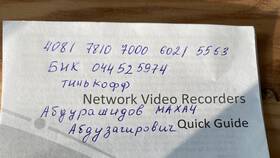 4081 7810 7000 6021 5553
БИК 044525974
тинькофф
Network Video Recorders
Абдурашидов МАХАЧ
Абдузагирович
Quick Guide